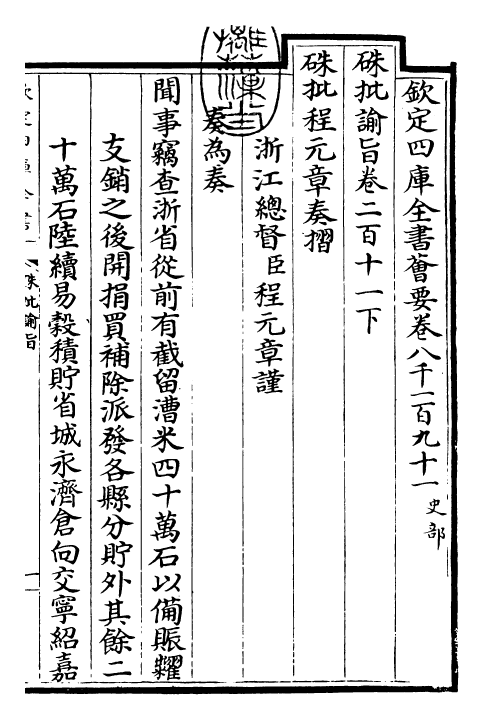 欽定四庫全書薈要卷八千一百九十一 史部
硃批諭旨卷二百十一下
硃批程元章奏摺
浙江總督臣程元章謹
奏為奏
聞事竊查浙省從前有截留漕米四十萬石以備賑糶
支銷之後開捐買補除派發各縣分貯外其餘二
十萬石陸續易穀積貯省城永濟倉向交寧紹嘉
硃批諭旨